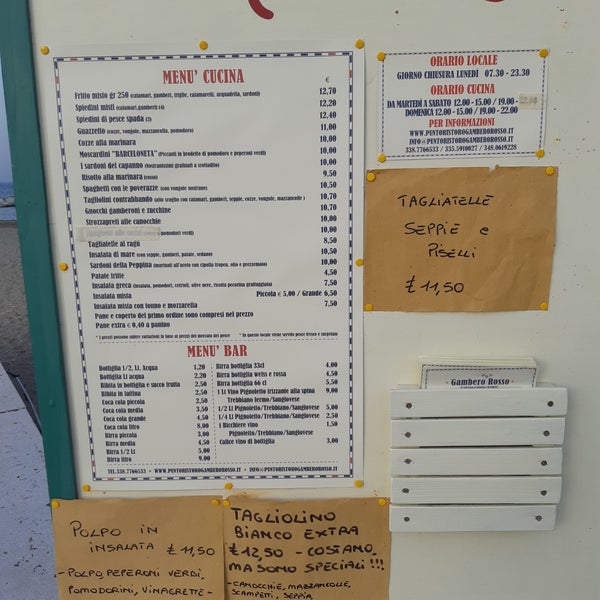 MENU' CUCINA
€
Fritto misto gr 250 (calamari, gamberi, triglie, calamaretti, acquadella, sardoni) 12,70
Spiedini misti (calamari, gamberi) (4) 12,20
Spiedini di pesce spada (3) 12,40
Guazzetto (cozze, vongole, mazzancolla, pomodoro) 11,00
Cozze alla marinara 10,00
Moscardini "BARCELONETA" (Piccanti in brodetto di pomodoro e peperoni verdi) 10,00
I sardoni del capanno (Nostranissimi gratinati a scottadito) 10,00
Risotto alla marinara (rosso) 9,50
Spaghetti con le poverazze (con vongole nostrane) 10,50
Tagliolini contrabbando (allo scoglio con calamari, gamberi, seppie, cozze, vongole, mazzancolle) 10,70
Gnocchi gamberoni e zucchine 10,70
Strozzapreti alle canocchie 10,00
pomodori verdi) 10,00
Tagliatelle al ragù 8,50
Insalata di mare (con seppie, gamberi, patate, sedano) 10,50
Sardoni della Peppina (marinati all'aceto con cipolla tropea, olio e prezzemolo) 10,00
Patate fritte 4,50
Insalata greca (insalata, pomodoro, cetrioli, olive nere, ricotta pecorina grattugiata) 7,50
Insalata mista Piccola € 5,00 / Grande 6,50
Insalata mista con tonno e mozzarella 7,50
Pane e coperto del primo ordine sono compresi nel prezzo
Pane extra € 0,40 a panino
* I prezzi possono subire variazioni in base ai prezzi del mercato del pesce * In questo locale viene servito pesce fresco e surgelato
MENU' BAR
Bottiglia 1/2 Lt. Acqua 1,20
Bottiglia Lt acqua 2,20
Bibita in bottiglia e succo frutta 2,50
Bibita in lattina 2,50
Coca cola piccola 2,50
Coca cola media 3,50
Coca cola grande 4,50
Coca cola litro 8,00
Birra piccola 3,00
Birra media 4,50
Birra 1/2 Lt 5,00
Birra litro 9,00
Birra bottiglia 33cl 4,00
Birra bottiglia weiss e rossa 4,50
Birra bottiglia 66 cl 5,50
1 Lt Vino Pignoletto frizzante alla spina 9,00
Trebbiano fermo/Sangiovese
1/2 Lt Pignoletto/Trebbiano/Sangiovese 5,00
1/4 Lt Pignoletto/Trebbiano/Sangiovese 2,50
1 Bicchiere vino 1,50
Pignoletto/Trebbiano/Sangiovese
Calice vino di bottiglia 3,00
TEL.338.7766533 • WWW.PUNTORISTOROGAMBEROROSSO.IT • INFO@PUNTORISTOROGAMBEROROSSO.IT
ORARIO LOCALE
GIORNO CHIUSURA LUNEDÌ 07.30 - 23.30
ORARIO CUCINA
DA MARTEDÌ A SABATO 12.00 - 15.00 / 19.00 -
DOMENICA 12.00 - 15.00 / 19.00 - 22.00
PER INFORMAZIONI
WWW.PUNTORISTOROGAMBEROROSSO.IT
INFO@PUNTORISTOROGAMBEROROSSO.IT
338.7766533 / 335.5910027 / 348.0619228
TAGLIATELLE
SEPPIE e
PISELLI
£ 11,50
- Gambero Rosso -
POLPO IN
INSALATA £ 11,50
- POLPO, PEPERONI VERDI,
POMODORINI, VINAGRETTE -
TAGLIOLINO
BIANCO EXTRA
£ 12,50 - COSTANO
MA SONO SPECIALI !!!
- CANOCCHIE, MAZZANCOLLE,
SCAMPETTI, SEPPIA,